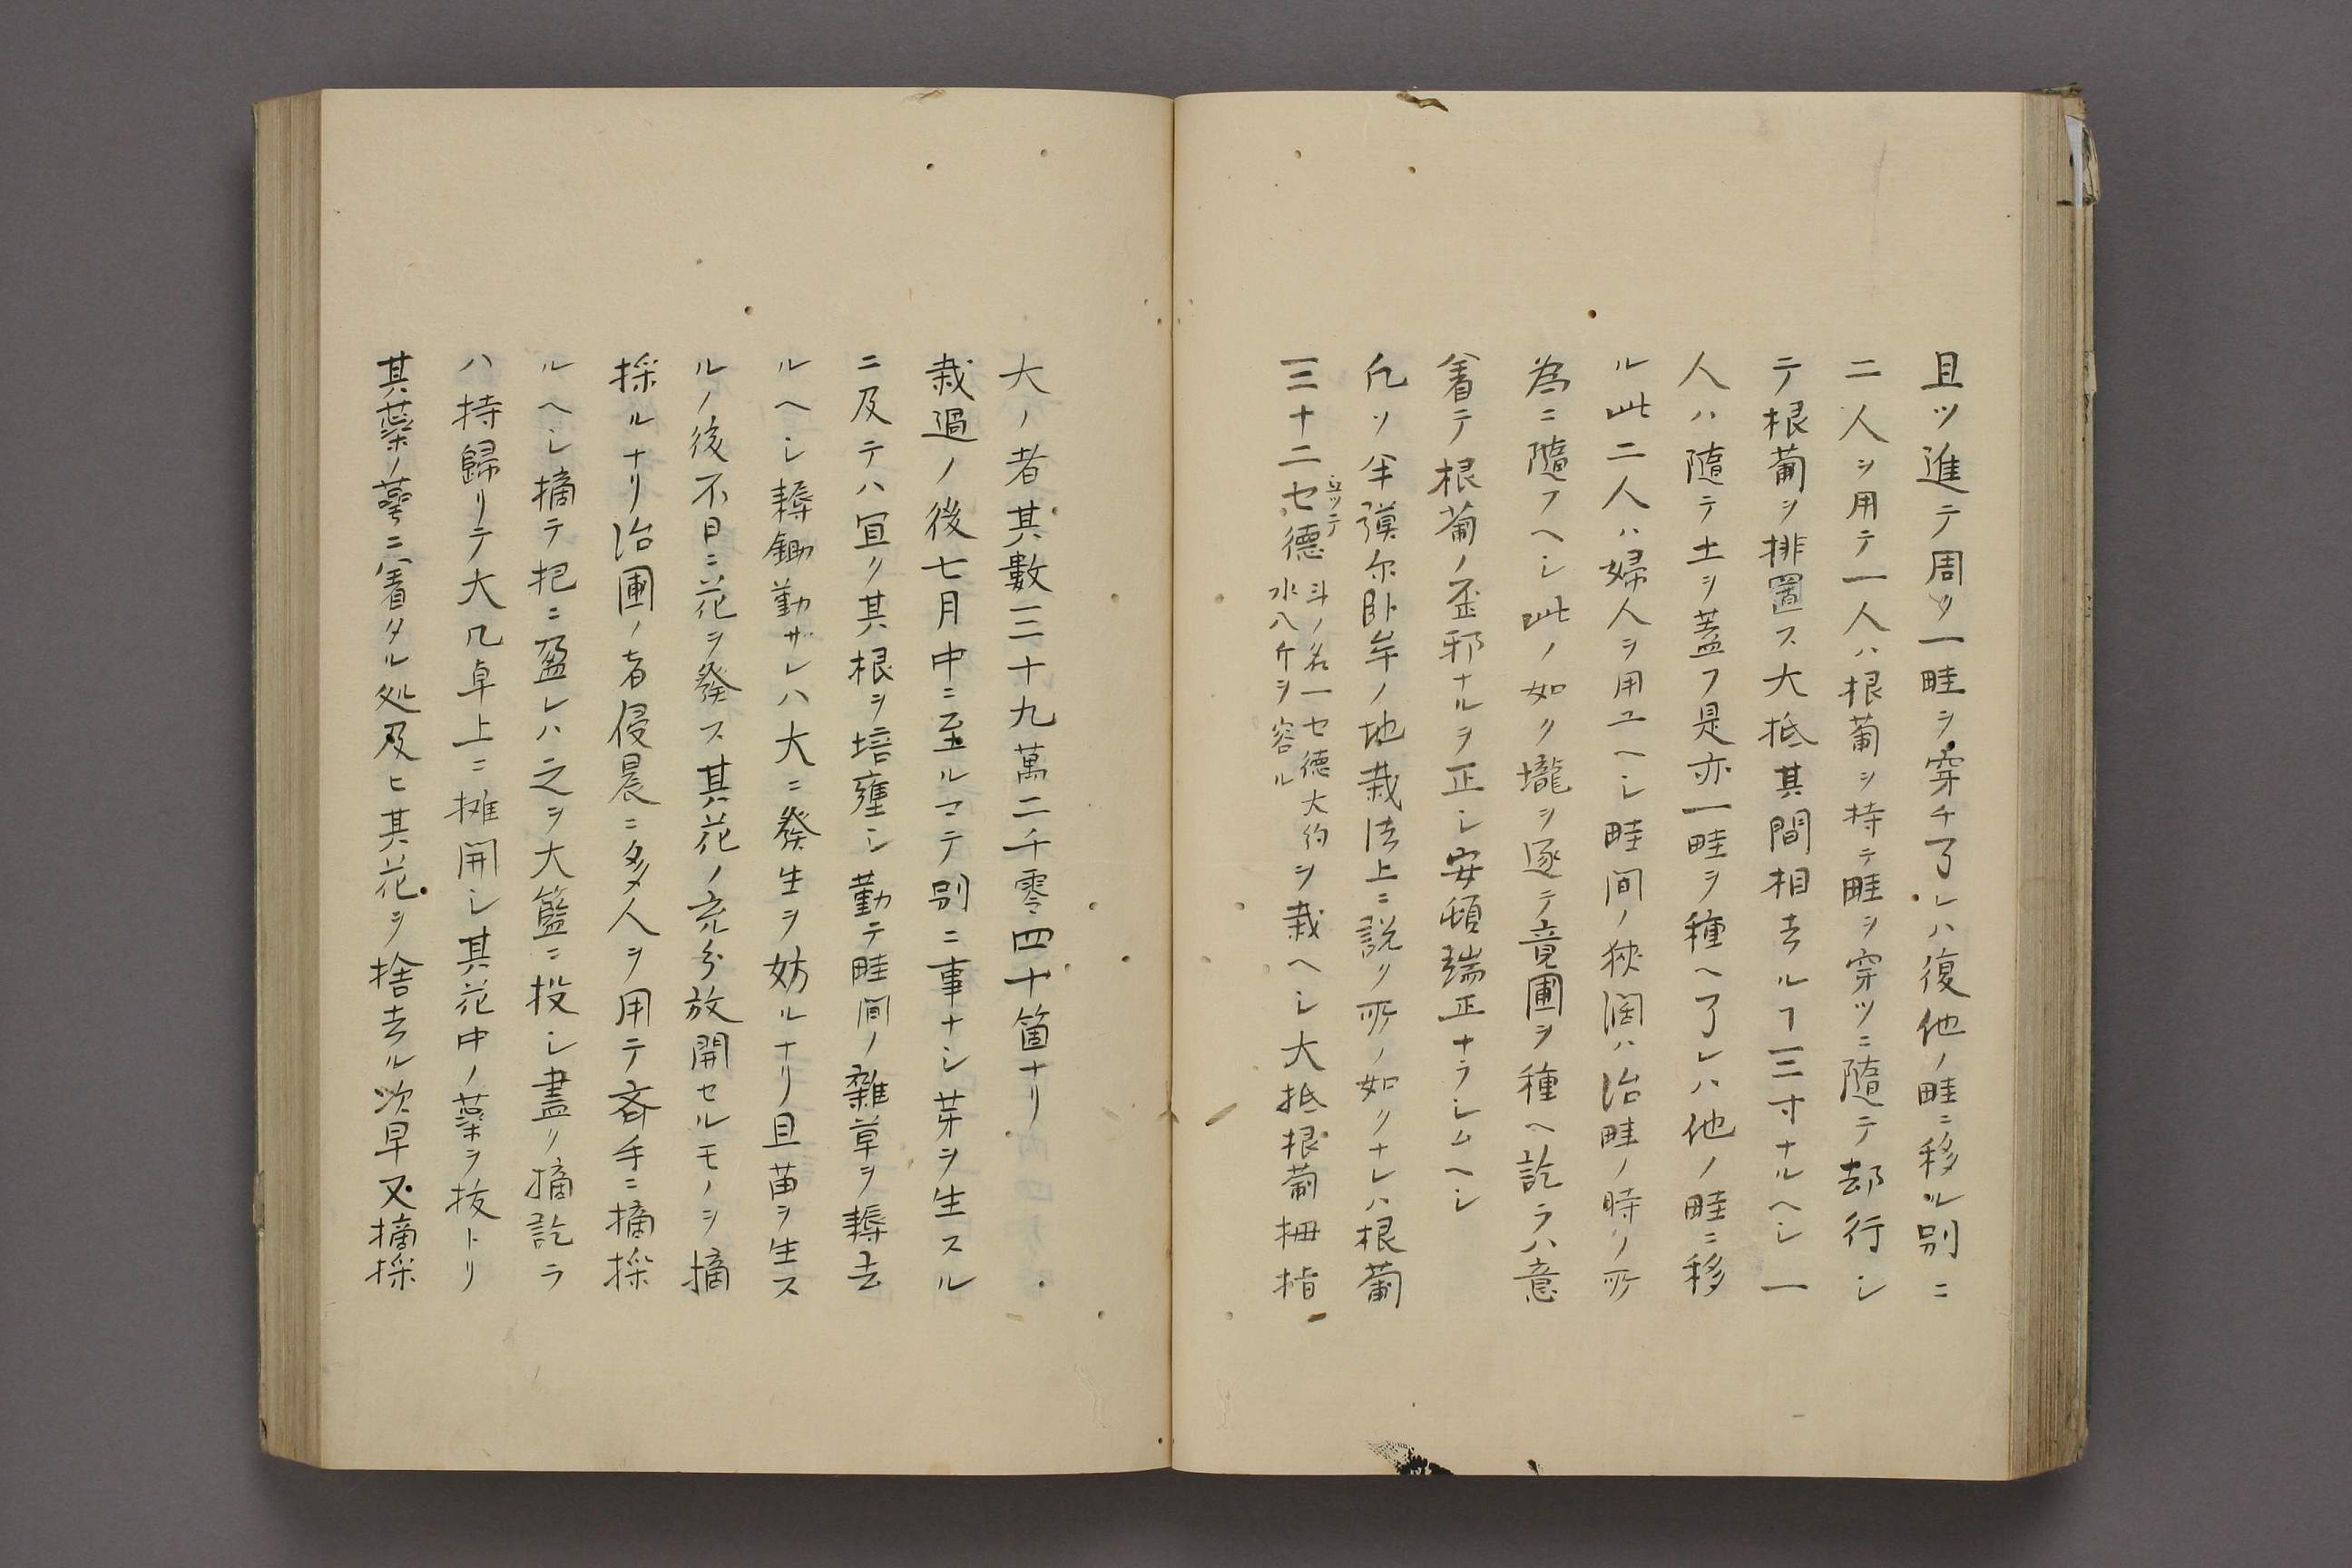 且ツ進テ周ク一畦ヲ穿チ了レハ復他ノ畦ニ移ル別ニ
二人ヲ用テ一人ハ根葡ヲ持テ畦ヲ穿ツニ隨テ却行シ
テ根葡ヲ排置ス大抵其間相去ルヿ三寸ナルヘシ一
人ハ隨テ土ヲ蓋フ是亦一畦ヲ種ヘ了レハ他ノ畦ニ移
ル此二人ハ婦人ヲ用ユヘシ畦間ノ狹濶ハ治畦ノ時ノ所
為ニ隨フヘシ此ノ如ク壠ヲ逐テ竟圃ヲ種ヘ訖ラハ意
著テ根葡ノ歪邪ナルヲ正シ安頓端正ナラシムヘシ
凢ソ半彍尓卧牟ノ地栽法上ニ説ク所ノ如クナレハ根葡
三十二セ德立ツテ斗ノ名一セ德大約水八斤ヲ容ルヲ栽ヘシ大抵根葡拇指
大ノ者其數三十九萬二千零四十箇ナリ
栽過ノ後七月中ニ至ルマテ別ニ事ナシ芽ヲ生スル
ニ及テハ宜ク其根ヲ培壅シ勤テ畦間ノ雜草ヲ耨去
ルヘシ耨鋤勤サレハ大ニ發生ヲ妨ルナリ且苗ヲ生ス
ルノ後不日ニ花ヲ發ス其花ノ充分放開セルモノヲ摘
採ルナリ治圃ノ者侵晨ニ多人ヲ用テ斉手ニ摘採
ルヘシ摘テ把ニ盈レハ之ヲ大籃ニ投シ盡ク摘訖ラ
ハ持歸リテ大几卓上ニ摊開シ其花中ノ蘂ヲ抜トリ
其蘂ノ莖ニ著タル処及ヒ其花ヲ捨去ル次早又摘採